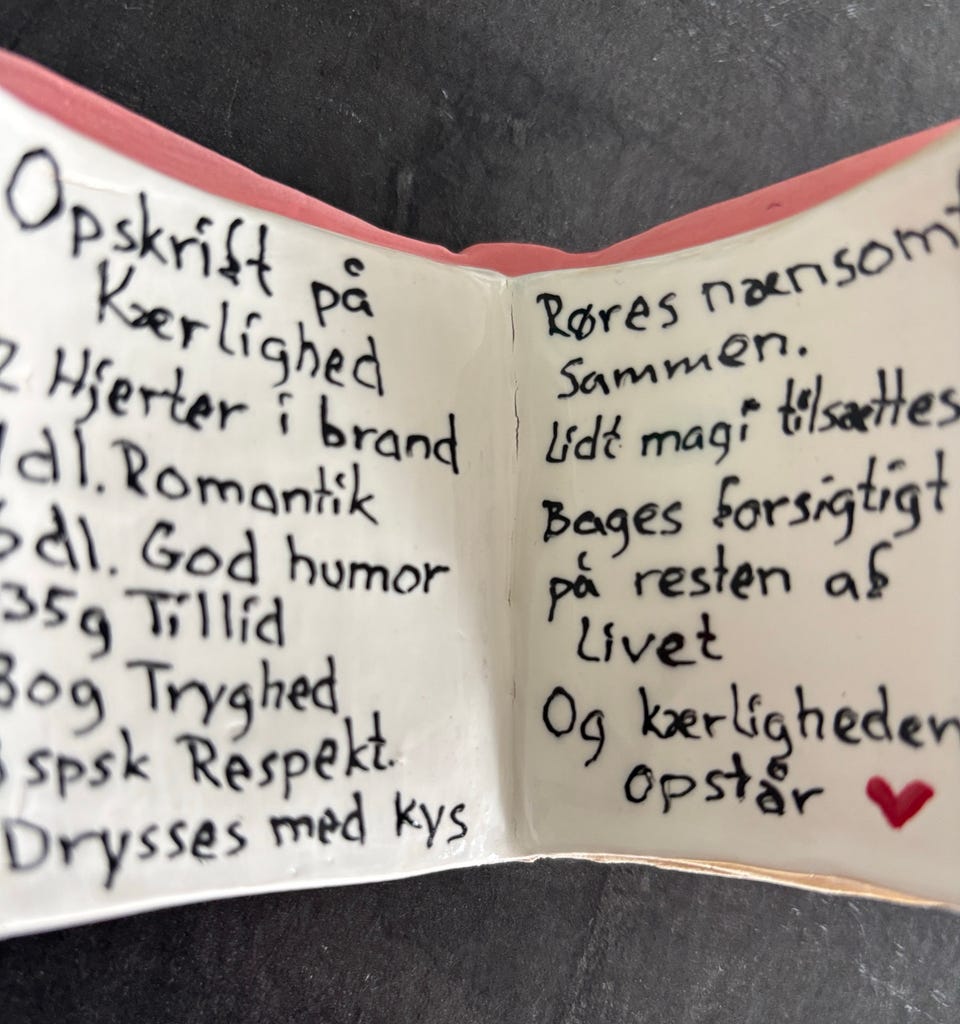 Opskrift på
Kærlighed
2 Hjerter i brand
dl. Romantik
dl. God humor
35g Tillid
30g Tryghed
spsk Respekt.
Drysses med kys
Røres nænsomt
Sammen.
Lidt magi tilsættes
Bages forsigtigt
på resten af
Livet
Og kærligheden
opstår